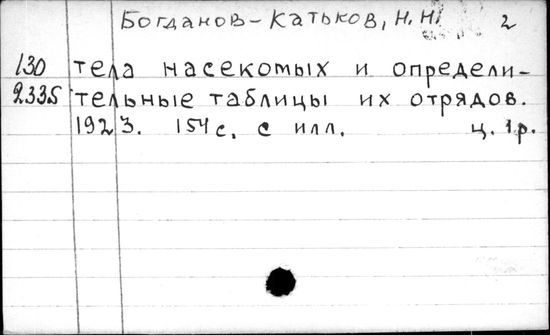 Богданов-Катьков, Н. Н. 2
130 тела насекомых и определи-
2335 тельные таблицы их отрядов.
1923. 154 с. с илл. ц. 1 р.